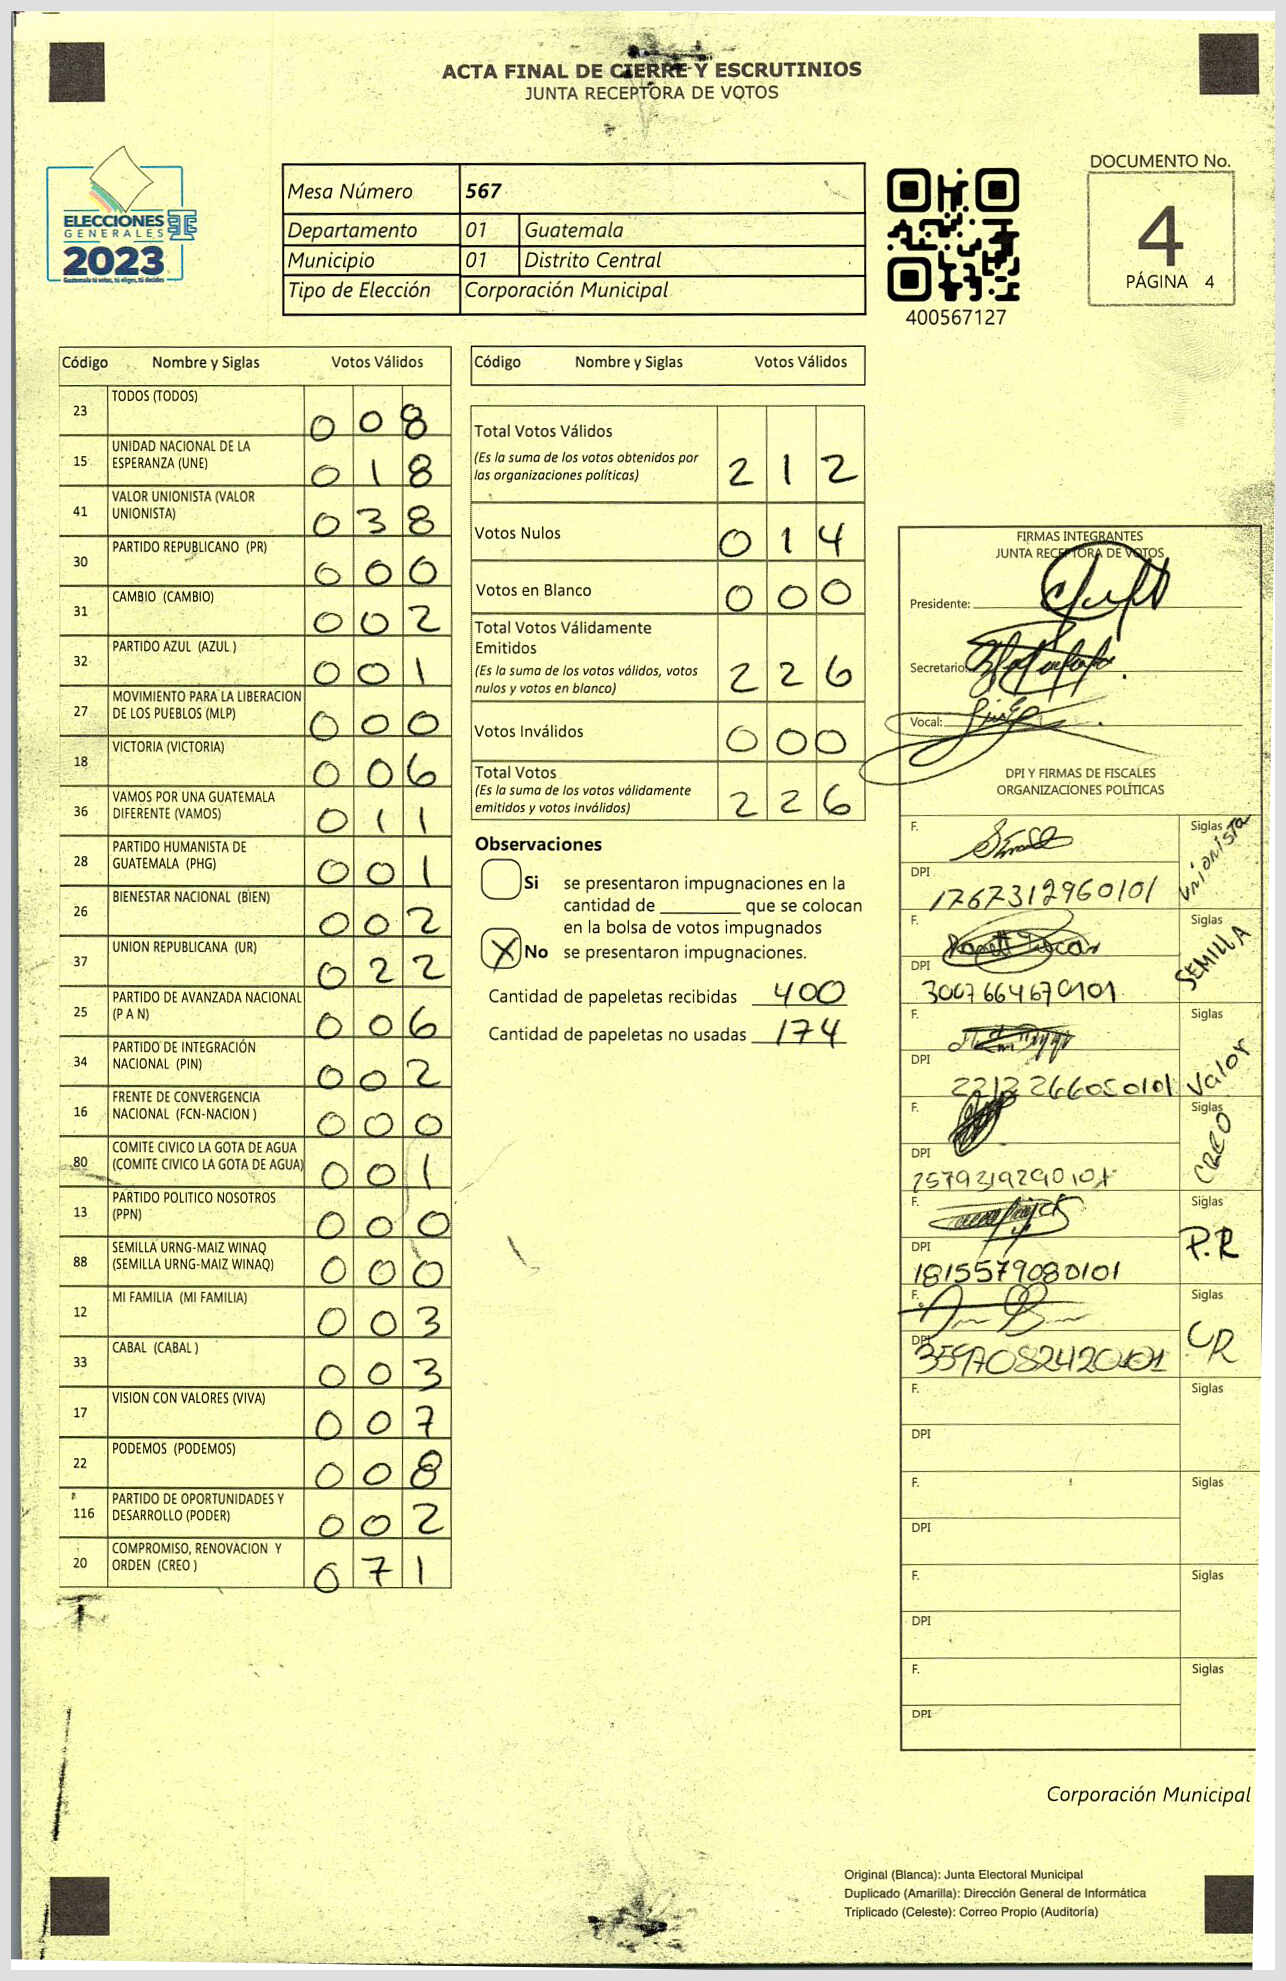 ACTA FINAL DE CIERRE Y ESCRUTINIOS
JUNTA RECEPTORA DE VOTOS
ELECCIONES
GENERALES
2023
Guatemala tú votas, tú eliges, tú decides
Mesa Número 567
Departamento 01 Guatemala
Municipio 01 Distrito Central
Tipo de Elección Corporación Municipal
400567127
DOCUMENTO No.
4
PÁGINA 4
Código Nombre y Siglas Votos Válidos
23 TODOS (TODOS) 0 0 8
15 UNIDAD NACIONAL DE LA ESPERANZA (UNE) 0 1 8
41 VALOR UNIONISTA (VALOR UNIONISTA) 0 3 8
30 PARTIDO REPUBLICANO (PR) 0 0 0
31 CAMBIO (CAMBIO) 0 0 2
32 PARTIDO AZUL (AZUL ) 0 0 1
27 MOVIMIENTO PARA LA LIBERACION DE LOS PUEBLOS (MLP) 0 0 0
18 VICTORIA (VICTORIA) 0 0 6
36 VAMOS POR UNA GUATEMALA DIFERENTE (VAMOS) 0 1 1
28 PARTIDO HUMANISTA DE GUATEMALA (PHG) 0 0 1
26 BIENESTAR NACIONAL (BIEN) 0 0 2
37 UNION REPUBLICANA (UR) 0 2 2
25 PARTIDO DE AVANZADA NACIONAL (P A N) 0 0 6
34 PARTIDO DE INTEGRACIÓN NACIONAL (PIN) 0 0 2
16 FRENTE DE CONVERGENCIA NACIONAL (FCN-NACION ) 0 0 0
80 COMITE CIVICO LA GOTA DE AGUA (COMITE CIVICO LA GOTA DE AGUA) 0 0 1
13 PARTIDO POLITICO NOSOTROS (PPN) 0 0 0
88 SEMILLA URNG-MAIZ WINAQ (SEMILLA URNG-MAIZ WINAQ) 0 0 0
12 MI FAMILIA (MI FAMILIA) 0 0 3
33 CABAL (CABAL ) 0 0 3
17 VISION CON VALORES (VIVA) 0 0 7
22 PODEMOS (PODEMOS) 0 0 8
116 PARTIDO DE OPORTUNIDADES Y DESARROLLO (PODER) 0 0 2
20 COMPROMISO, RENOVACION Y ORDEN (CREO ) 0 7 1
Código Nombre y Siglas Votos Válidos
Total Votos Válidos
(Es la suma de los votos obtenidos por
las organizaciones políticas) 2 1 2
Votos Nulos 0 1 4
Votos en Blanco 0 0 0
Total Votos Válidamente
Emitidos
(Es la suma de los votos válidos, votos
nulos y votos en blanco) 2 2 6
Votos Inválidos 0 0 0
Total Votos
(Es la suma de los votos válidamente
emitidos y votos inválidos) 2 2 6
Observaciones
Si se presentaron impugnaciones en la
cantidad de ________ que se colocan
en la bolsa de votos impugnados
X No se presentaron impugnaciones.
Cantidad de papeletas recibidas 400
Cantidad de papeletas no usadas 174
FIRMAS INTEGRANTES
JUNTA RECEPTORA DE VOTOS
Presidente:
Secretario:
Vocal:
DPI Y FIRMAS DE FISCALES
ORGANIZACIONES POLÍTICAS
F. Siglas unionista
DPI 1767312960101
F. Siglas SEMILLA
DPI 3007664670101
F. Siglas Valor
DPI
F. Siglas CREO
DPI
F. Siglas P.R
DPI 1815579080101
F. Siglas UR
DPI
F. Siglas
DPI
F. Siglas
DPI
F. Siglas
DPI
F. Siglas
DPI
Corporación Municipal
Original (Blanca): Junta Electoral Municipal
Duplicado (Amarilla): Dirección General de Informática
Triplicado (Celeste): Correo Propio (Auditoría)